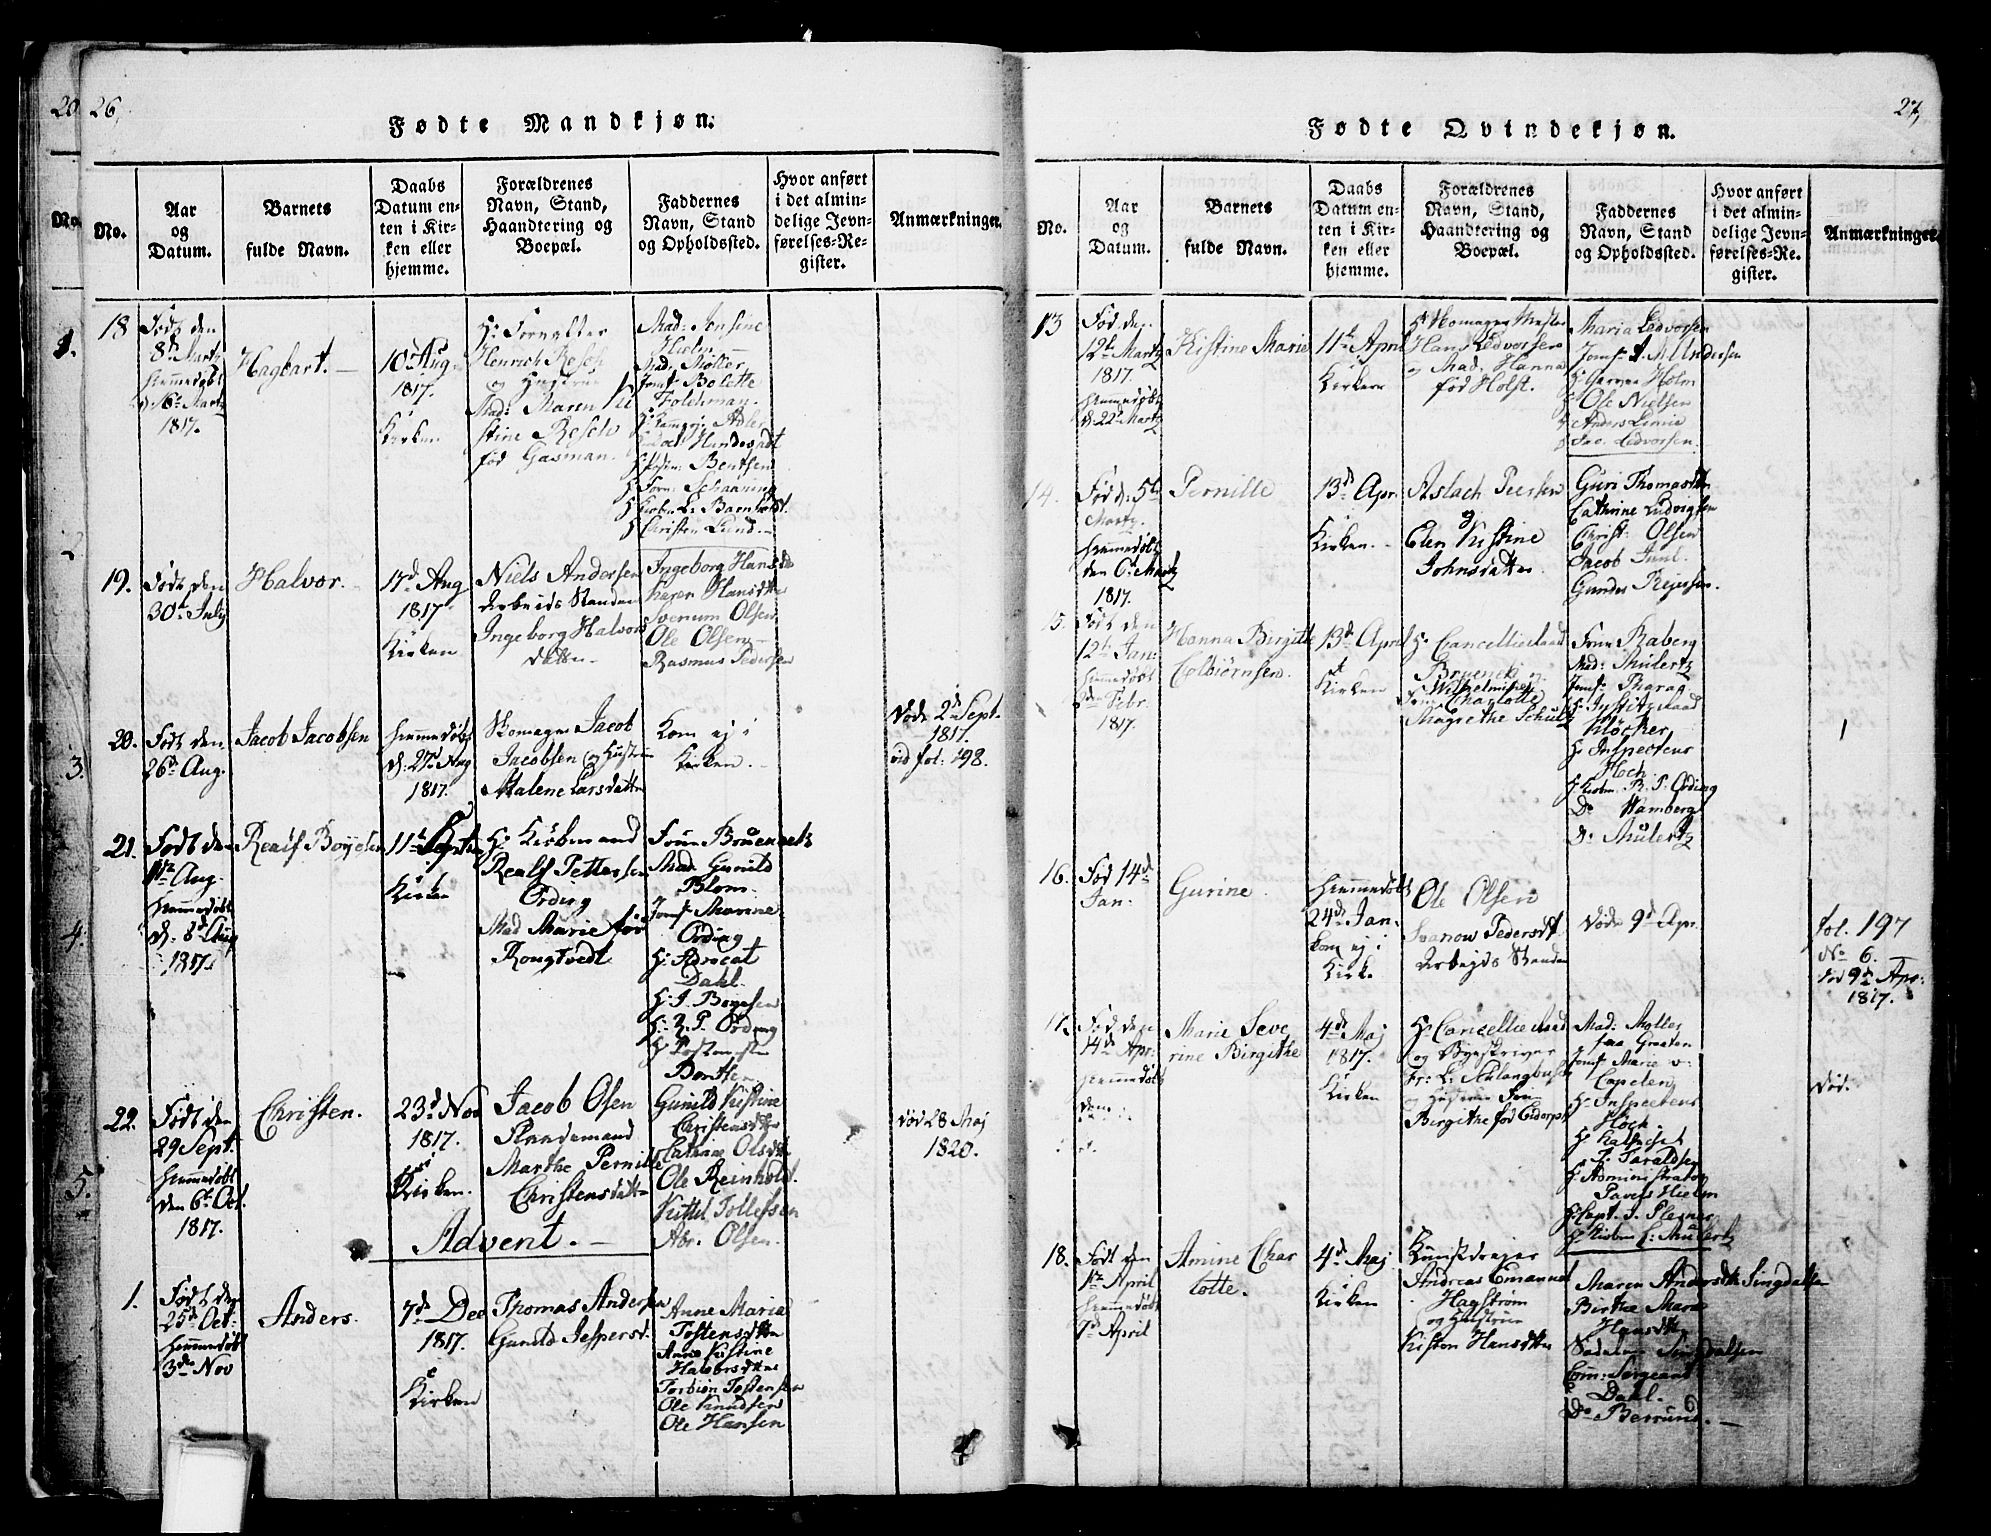 26,
Fødte Mandkjøn.
No.
Aar
og
Datum.
Barnets
fulde Navn.
Daabs
Datum en-
ten i Kir-
ken eller
hjemme.
Forældrenes
Navn, Stand,
Haandtering og
Boepæl.
Faddernes
Navn, Stand
og Opholdssted.
Hvor anført
i det almin-
delige Jevn-
førelses-Re-
gister.
Anmærkninger.
18
Født den
8de Martz
hiemmedøbt
d. 16de Martz
1817.
Hagbart.
10d Aug
1817.
i
Kirken
Hr Forvalter
Henrich Resch
og Hustrue
Mad: Maren Ki
stine Resch
fød Gasman.
Mad: Jensine
Hielm
Mad. Møller
Jomf: Bolette
Foldeman.
Hr Christen Lund
19.
Født den
30te July
Halvor.
17d Aug
1817.
i
Kirken
Niels Andersen
Arbeids Manden
Ingeborg Halvors
datter
Ingeborg Hansd
Karen Hansdtter
Svenum Olsen
Ole Olsen
Rasmus Pedersen
20.
Født den
26d Aug.
Jacob Jacobsen
hiemmedøbt
d. 27d Aug
1817.
Skomager Jacob
Jacobsen og Hustrue
Malene Larsdatter
Kom ej i
Kirken.
Døde 2d Sept.
1817.
vid fol: 198.
21.
Født den
1te Aug.
hiemmedøbt
d. 8d Aug
1817.
Realf Boyesen
11te Septbr
i
Kirken
Hr Kiøbmand
Realf Pettersen
Ording
Mad Marie fød
Rongtvedt
Frue Bruenech
Mad. Gunild
Blom.
Jomf. Marine
Ording
Hr Advocat
Dahl.
Hr J. Boyesen
Hr R. P. Ording
Hr Postmester
Bentsen
22.
Født den
29 Sept.
hiemmedøbt
den 6te Oct.
1817.
Christen.
23d Nov
1817.
i
Kirken.
Jacob Olsen
Plandemand
Marthe Pernille
Christensdatter
Gunild Kistine
Christensdtter
Cathrine Olsdt
Ole Reinholdt.
Kittel Tollefsen
Abr. Olsen.
død 28 Maj
1820.
Advent.
1.
Født den
25d Oct:
hiemmedøbt
3de Nov
Anders.
7de Dec
1817.
i
Kirken
Thomas Andersen
Gunild Jespersd.
Anne Maria
Tostensdtter
Anne Kistine
Halvorsdtter
Torbiøn Tostensen
Ole Knudsen
Ole Hansen
27,
Fødte Qvindekjøn.
No.
Aar
og
Datum.
Barnets
fulde Navn.
Daabs
Datum en-
ten i Kir-
ken eller
hjemme.
Forældrenes
Navn, Stand,
Haandtering og
Boepæl.
Faddernes
Navn, Stand
og Opholdssted.
Hvor anført
i det almin-
delige Jevn-
førelses-Re-
gister.
Anmærkninger.
13
Fød den
12te Martz
1817.
hiemmedøbt
d. 22de Martz
Kistine Marie
11te April
i
Kirken
Hans Ledvorsen
og Mad. Hanna
fød Holst.
Maria Ledvorsen
Jomf A. M Andersen
Holm
Ole Nielsen
Anders Linnie
14.
Fød d: 5te
Martz.
hiemmedøbt
den 6te Martz
1817.
Pernille
13d Apr.
i
Kirken.
Aslach Peersen
og
Elen Kistine
Johnsdatter
Guri Thomasdtter
Cathrine Ludvigsen
Christ: Olsen
Jacob Juul.
Gunder Reiersen.
15.
Født den
12te Jan
hiemmedøbt
Febr.
1817.
Hanna Birgitte
Colbiørnsen.
13d April
i
Kirken
Hr Cancellieraad
Bruenech og
Frue Wilhelmine
Charlotte
Magrethe Schultz
Frue Raberg
Mad: Mulertz
Hr Justitzraad
Kløcker,
Hr Inspecteur
Hoch.
Hr Kiøbm. R. P. Ording
Do Wamberg
Do Mulertz
16.
Fød 14de
Jan.
Gurine.
hiemmedøbt
24de Jan
kom ej i
Kirke
Ole Olsen
Svanow Pedersdt.
Arbejds Manden
Døde 9d Apr.
fol. 197
No 6.
død 9de Apr.
1817.
17.
Fød den
14de Apr:
hiemmedøbt
den
Marie Seve
rine Birgithe
4de Maj
1817.
i
Kirken
Hr Cancellieraad
og Byeskriver
Fr: L. Stulangbusch
og Hustrue
Birgithe fød Eidorph
Mad: Møller
paa Graaten
Jomf Marie v:
Capelen
Hr Inspecteur
Hoch.
T. Taraldsen
Hr Administrator
Paveels Hielm
Hr Capt. J. Plesner
Hr Kiøbm L: Mulertz
Død.
18.
Født den
1te April
hiemmedøbt
7d April
Amine Char
lotte.
4de Maj
i
Kirken
Kunstdrejer
Andreas Emanuel
Hagstrøm
og Hustrue
Kisten Hansdtter
Maren Andersdtr Singdalsen
Birthe Marie
Hansdtter
Sadelm: Singdalsen
Com: Sergeant
Dahl.
Do Berrum.